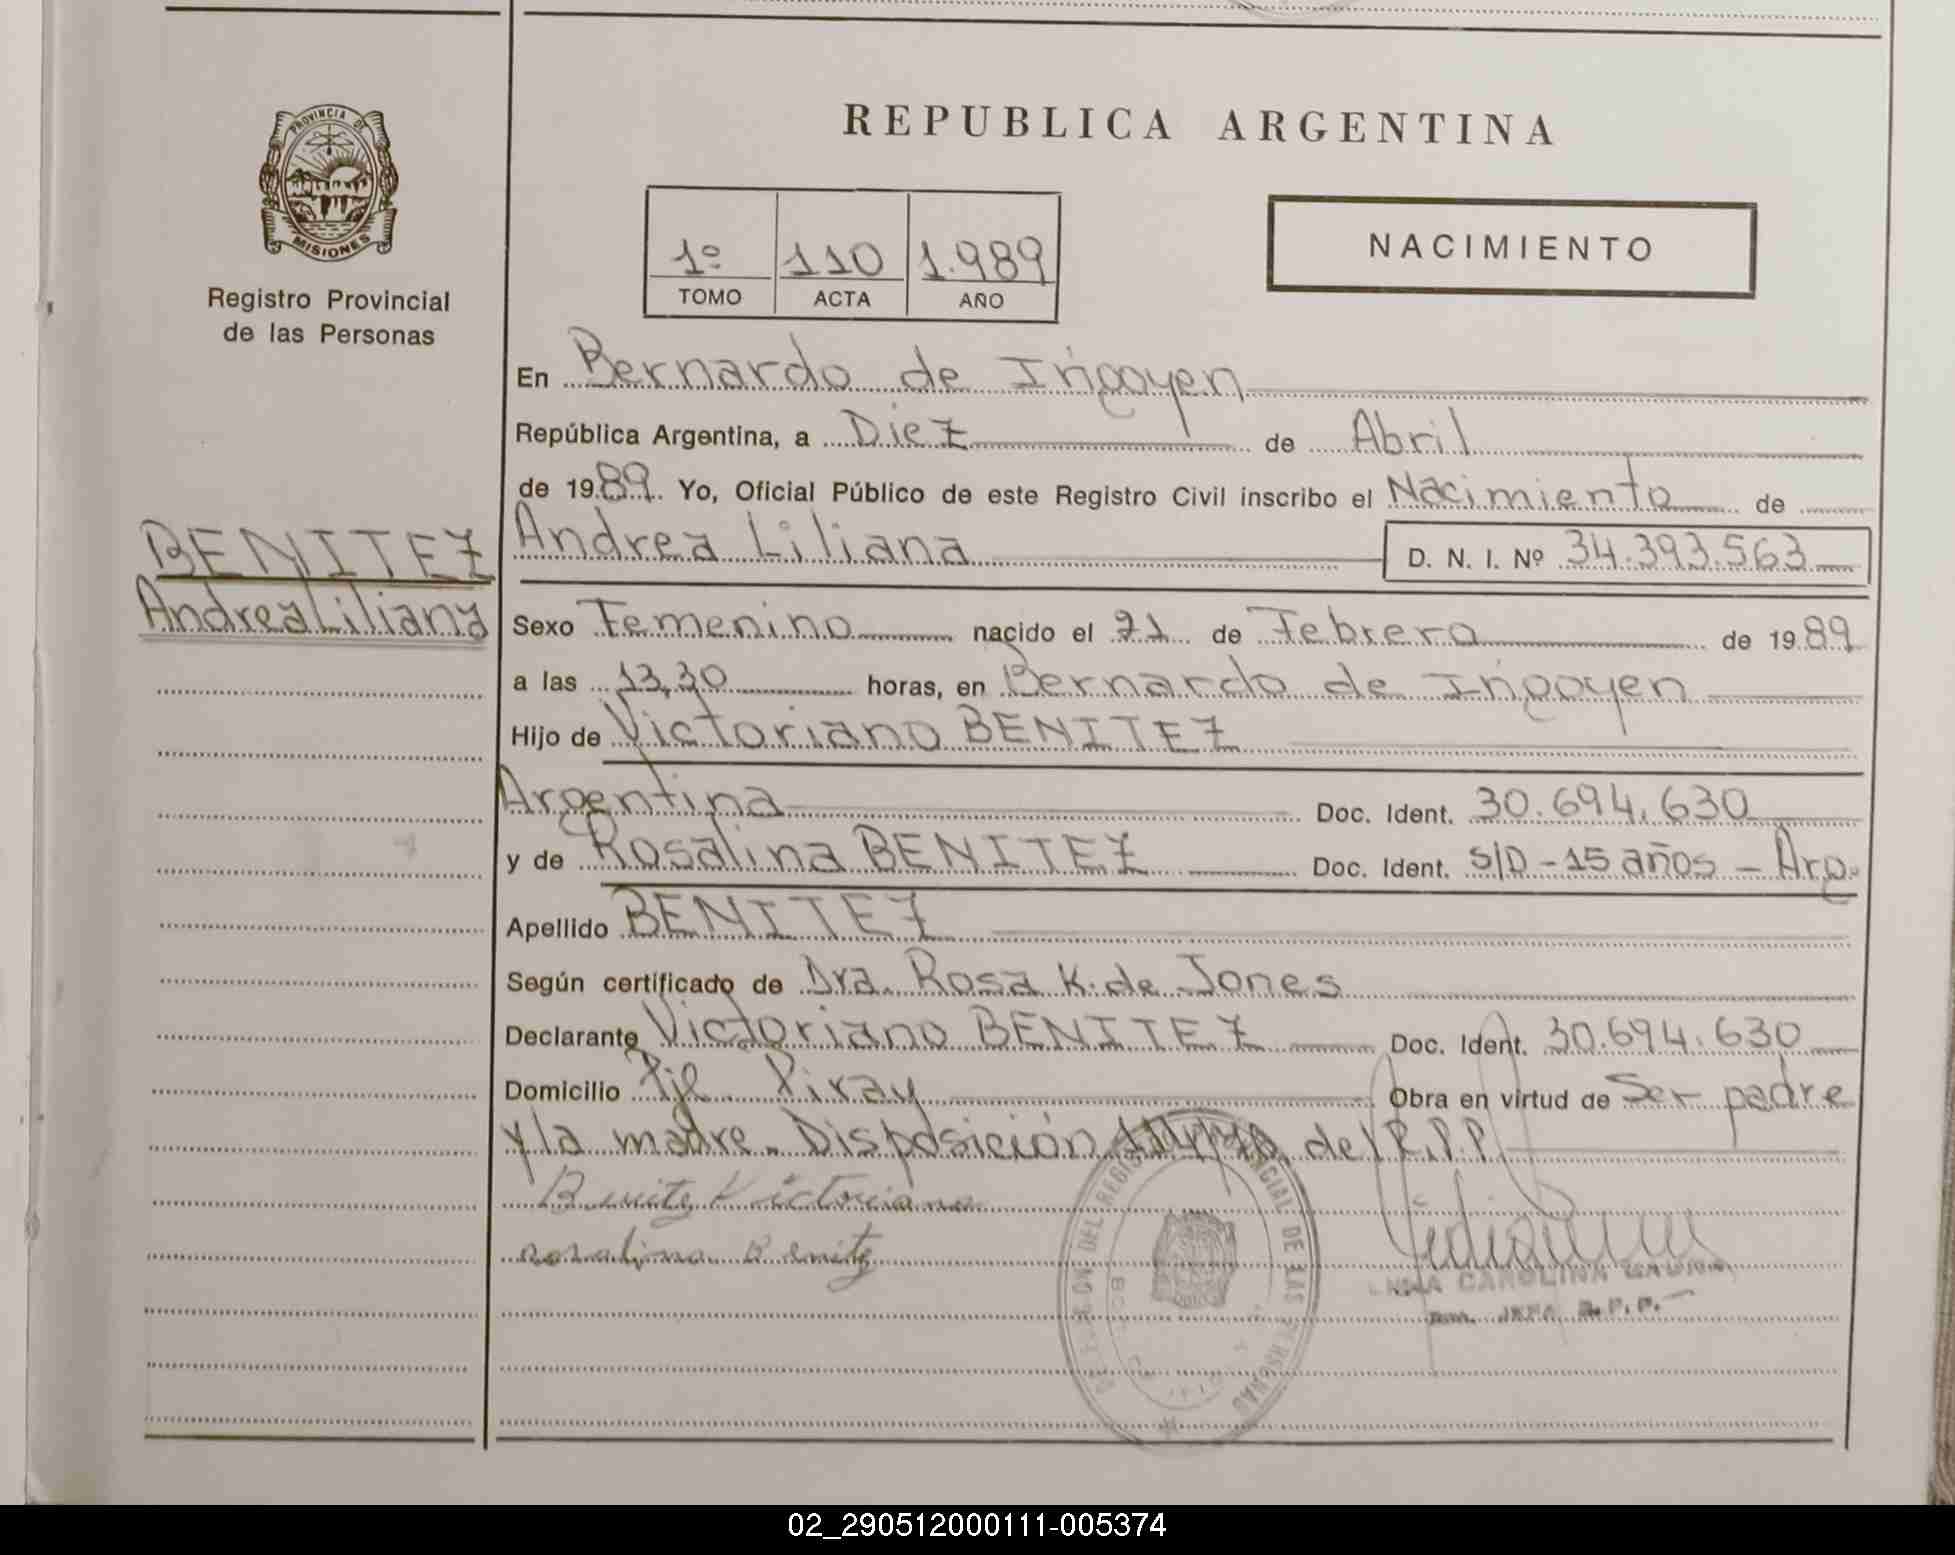 PROVINCIA DE
MISIONES
Registro Provincial
de las Personas
BENITEZ
Andrea Liliana
REPUBLICA ARGENTINA
1º 110 1.989
TOMO ACTA AÑO
NACIMIENTO
En Bernardo de Irigoyen
República Argentina, a Diez de Abril
de 1989 Yo, Oficial Público de este Registro Civil inscribo el Nacimiento de
Andrea Liliana D. N. I. Nº 34.393.563
Sexo Femenino nacido el 21 de Febrero de 1989
a las 13,30 horas, en Bernardo de Irigoyen
Hijo de Victoriano BENITEZ
Argentina Doc. Ident. 30.694.630
y de Rosalina BENITEZ Doc. Ident. S/D - 15 años - Arg.
Apellido BENITEZ
Según certificado de Dra. Rosa K. de Jones
Declarante Victoriano BENITEZ Doc. Ident. 30.694.630
Domicilio Pje. Piray Obra en virtud de Ser padre
y la madre. Disposición del R.P.P.
Benitez Victoriano
rosalina Benitez
CAROLINA
JEFA R.P.P.
DEL REGISTRO PROVINCIAL DE LAS PERSONAS
02_290512000111-005374